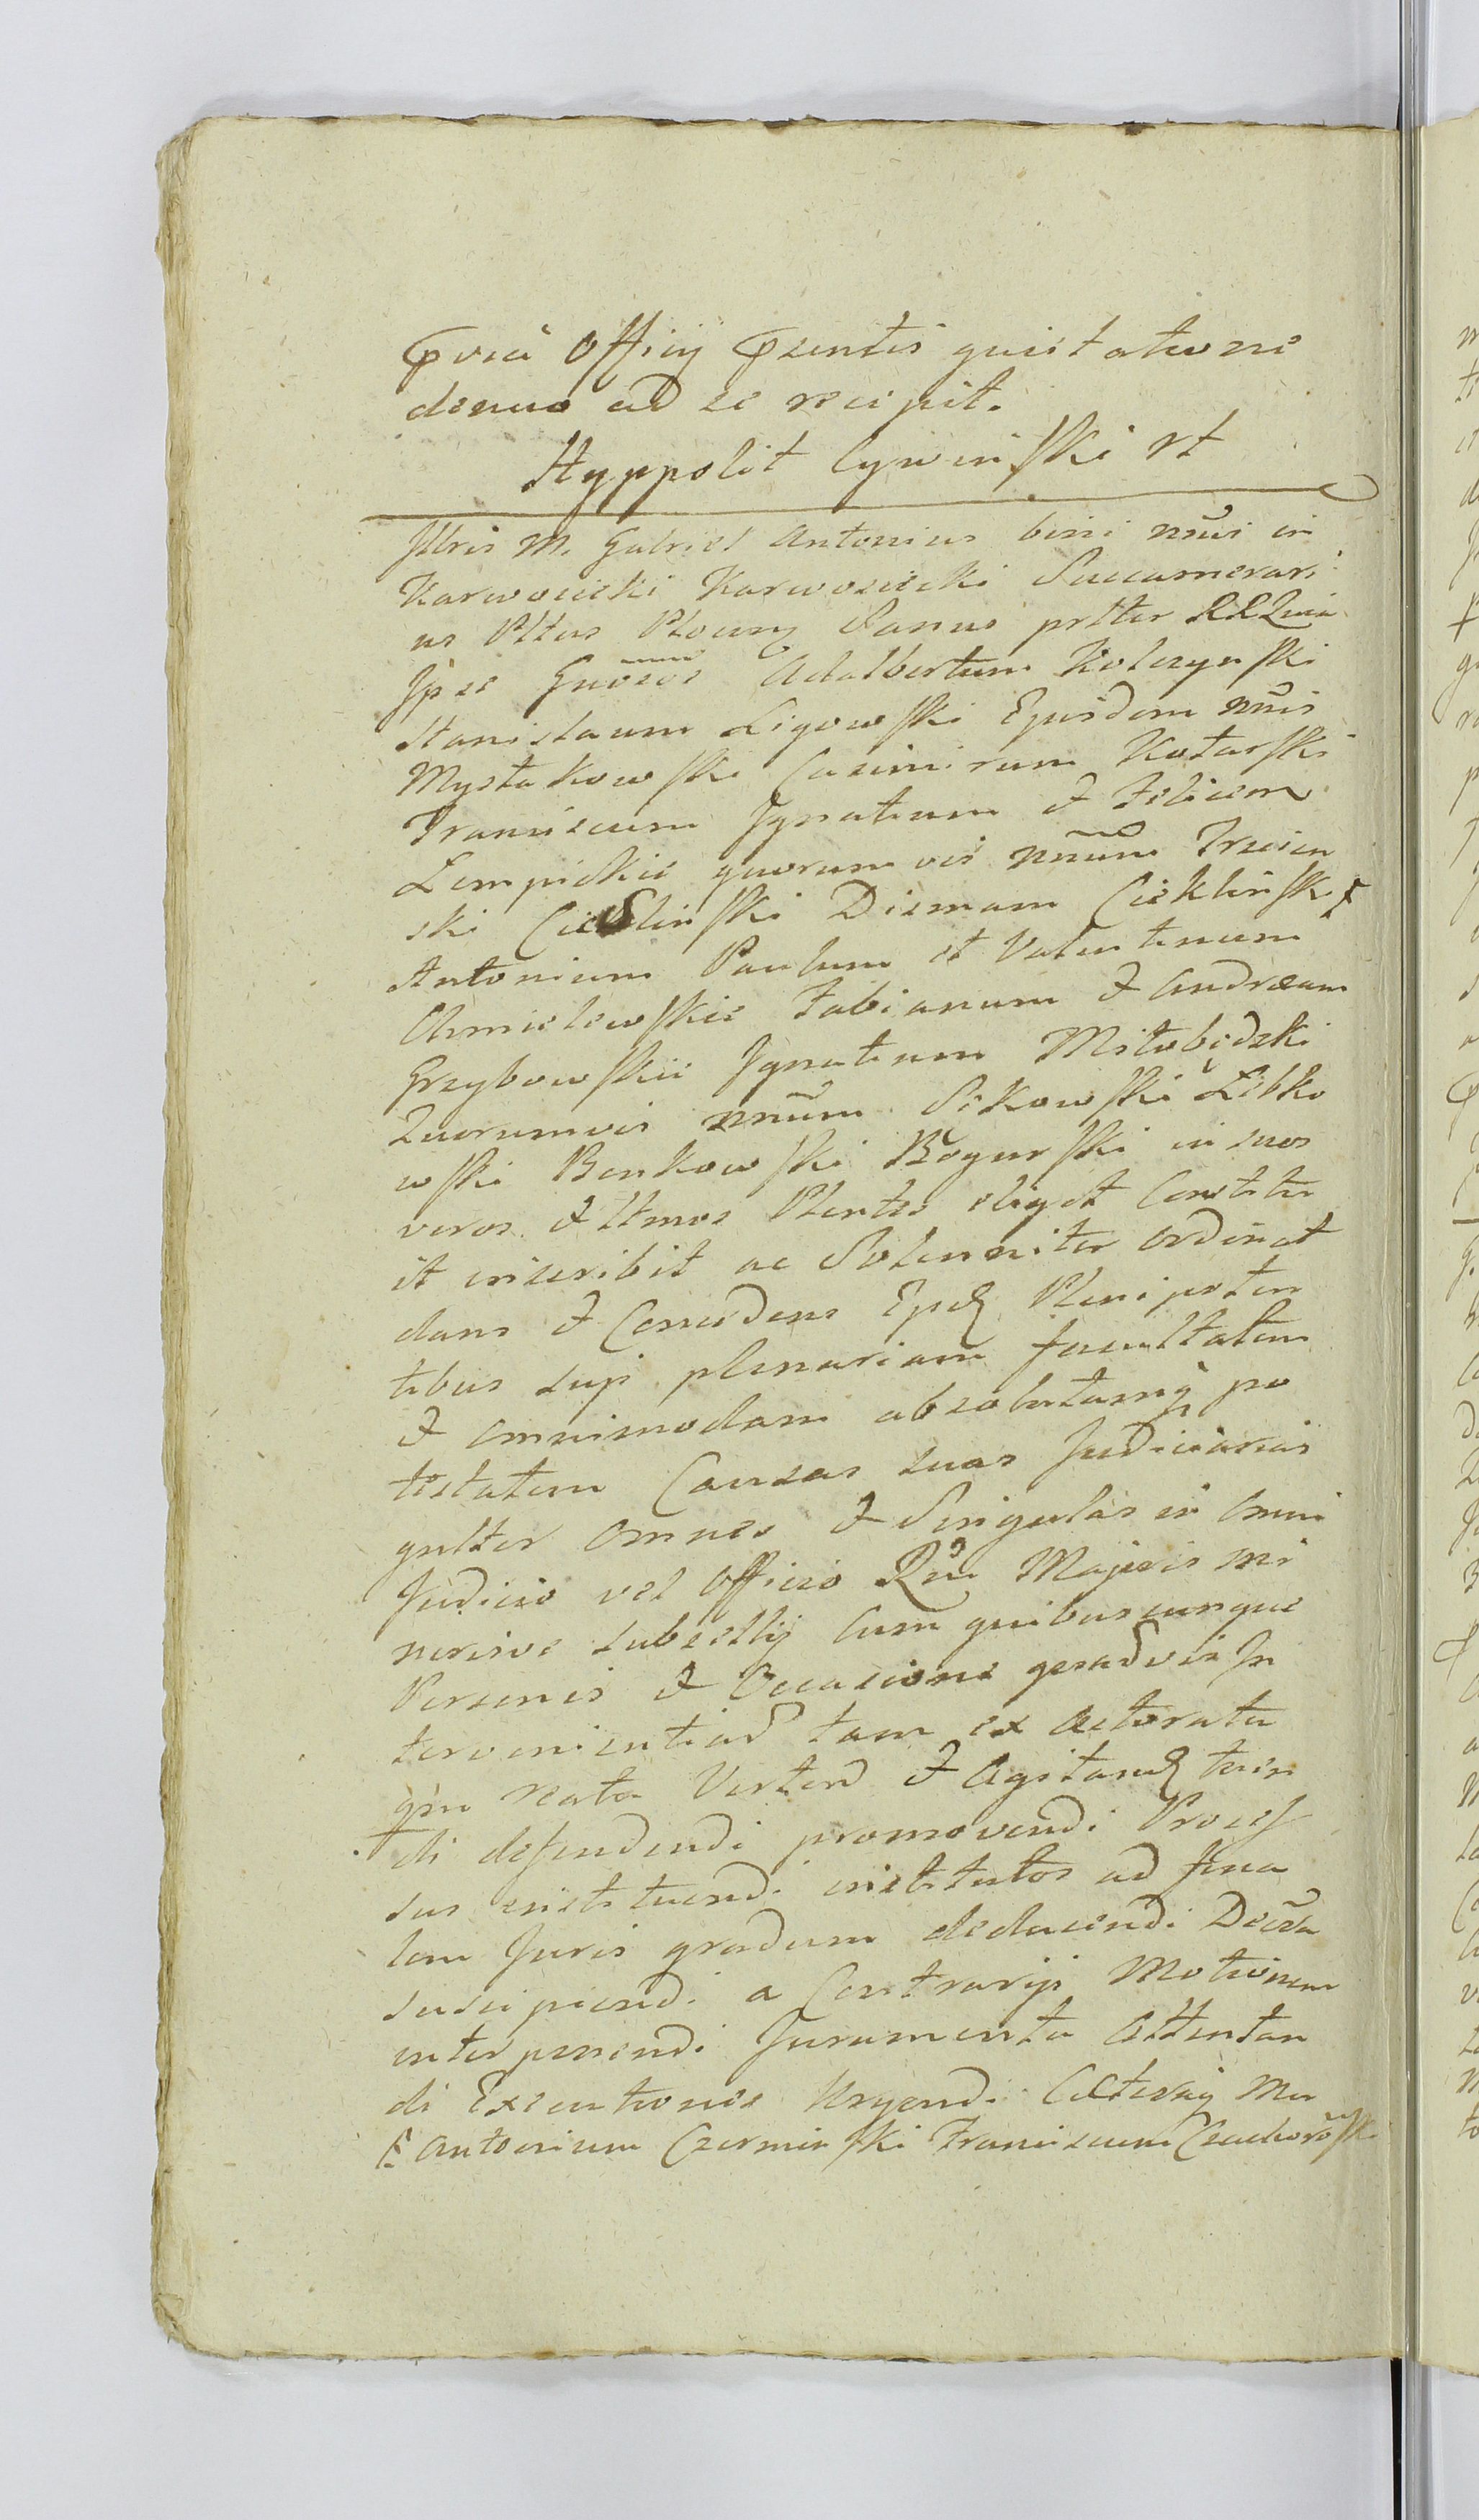 Officij quietatione
denuo ad se recipit.
Hyppolit Cywinski
Jllris M. Gabriel Antonius bini nnis in
Karwosiecki Karwosiecki Succamerari
us Pltus Plocen Sanus pltter RRLnia
Jpse Gnosos Adalbertum Kolczynski
Stanislaum Ligowski Ejusdem nnis
Mystkowski Casimirum Kotarski
Franciscum Jgnatium et Felicem
Lempickie quorum vis nnum Trzcin
ski Cieslinski Dismam Cieklinski
Antonium Paulum et Valentinum
Chmielewskie Fabianum et Andræam
Grzybowskie Jgnatium Miłobędzki
Quorumvis nnum Sikowski Libko
wski Benkowski Bogurski in suos
veros et ltmos Plentes eligit Constitu
it inscribit ac Solenniter ordinat
dans et Concedens Plenipoten
tibus suis plenariam facultatem
et omnimodam absolutamq po
testatem Causas suas Judiciarias
gnlter omnes et Singulas in omni
Judicio vel Officio Rni Majoris mi
norisve subsellij Cum quibuscunque
Personis et Occasione Jn
tervenientiad tam ex Actoratu
qm Reatu Vertend et Agitand tuen
di defendendi promovendi Proces
sus instituendi institutos ad fina
lem Juris gradum deducendi Decreta
suscipiendi a Contrarijs Motionem
interponendi Juramenta Attentan
di Executiones Urgendi Cæterosq
Antonium Czerminski Franciscum